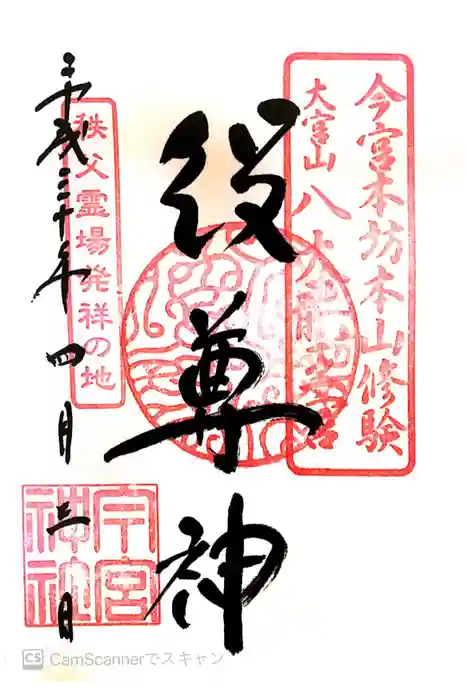 今宮本坊本山修験
大宮山八大龍王宮
役尊神
秩父霊場発祥の地
平成三十年四月三日
今宮神社
CS CamScannerでスキャン